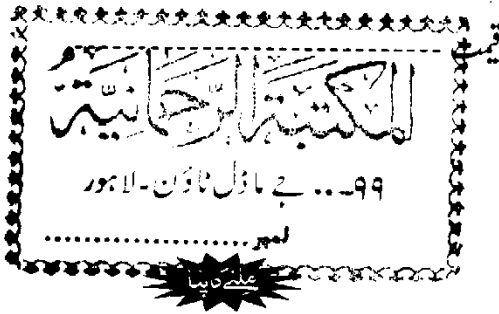 المكتبة الرحمانية
۹۹-.. جے ماڈل ٹاؤن۔لاہور
نمبر......................
ملنے کا پتا